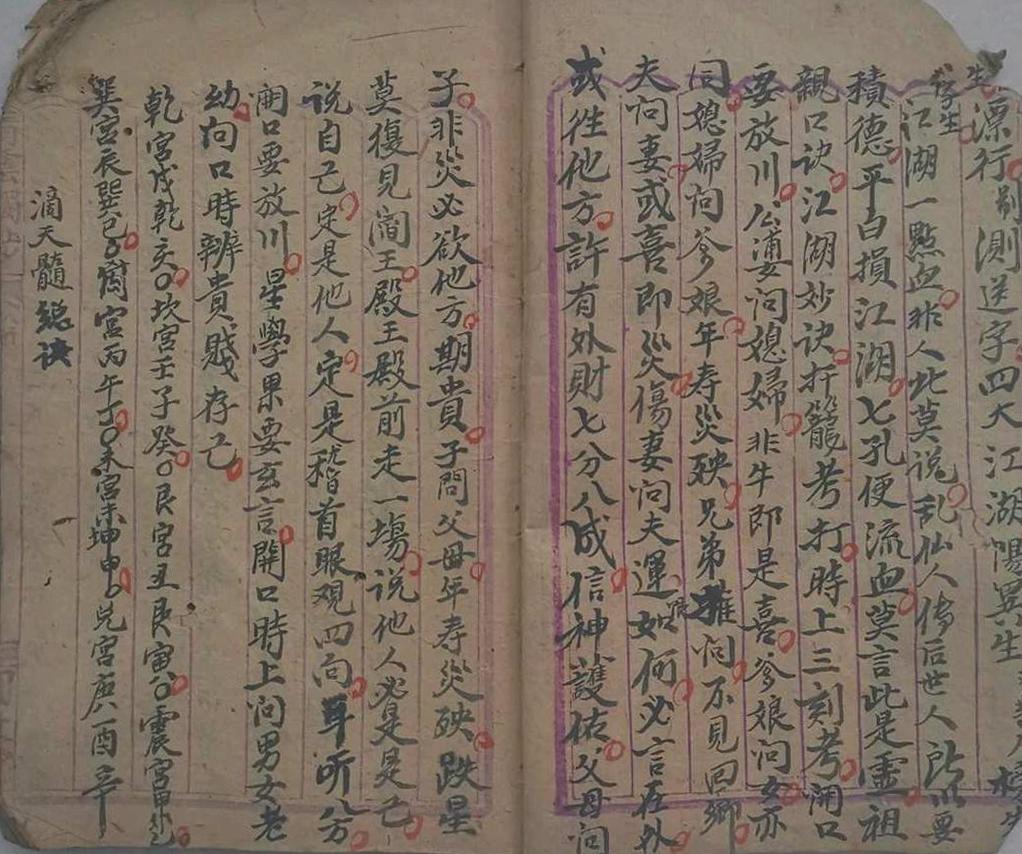 漂行 測送字四大江湖
江湖一點血非人此莫说乱仙人傳后世人 所以要
積德平白損江湖七孔便流血莫言此是靈祖
親口诀江湖妙诀 籠考打時上三刻考開口
要放川公婆问媳婦非牛即是喜爹娘问女亦
同媳婦问爹娘年寿災殃兄弟 问不見回鄉
夫问妻或喜即災傷妻问夫運如何必言在外
或徃他方許有外財七分八成信神護佑父母问
子非災必欲他方期貴子問父母年寿災殃跌星
莫復見閻王殿王殿前走一塲说他人必是是己
说自己定是他人定是稽首眼观四向耳听八方
開口要放川星學果要玄言開口時上问男女老
幼问口時辨貴賎存己
乾宮戌乾亥坎宮壬子癸艮宮丑艮寅震宮甲
巽宮辰巽巳 宮丙午丁 宮未坤申兑宮庚酉辛
滴天髓総诀